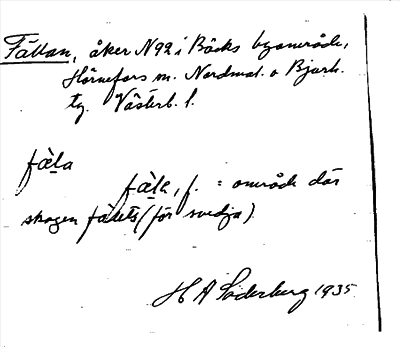 Fällan, åker N92 i Bäcks byområde,
Hörnefors m. Nordmal. o Bjurh.
tg. Västerb. l.
fäla
fälɐ, f. = område där
skogen fällts (för svedja)
H A Söderberg 1935